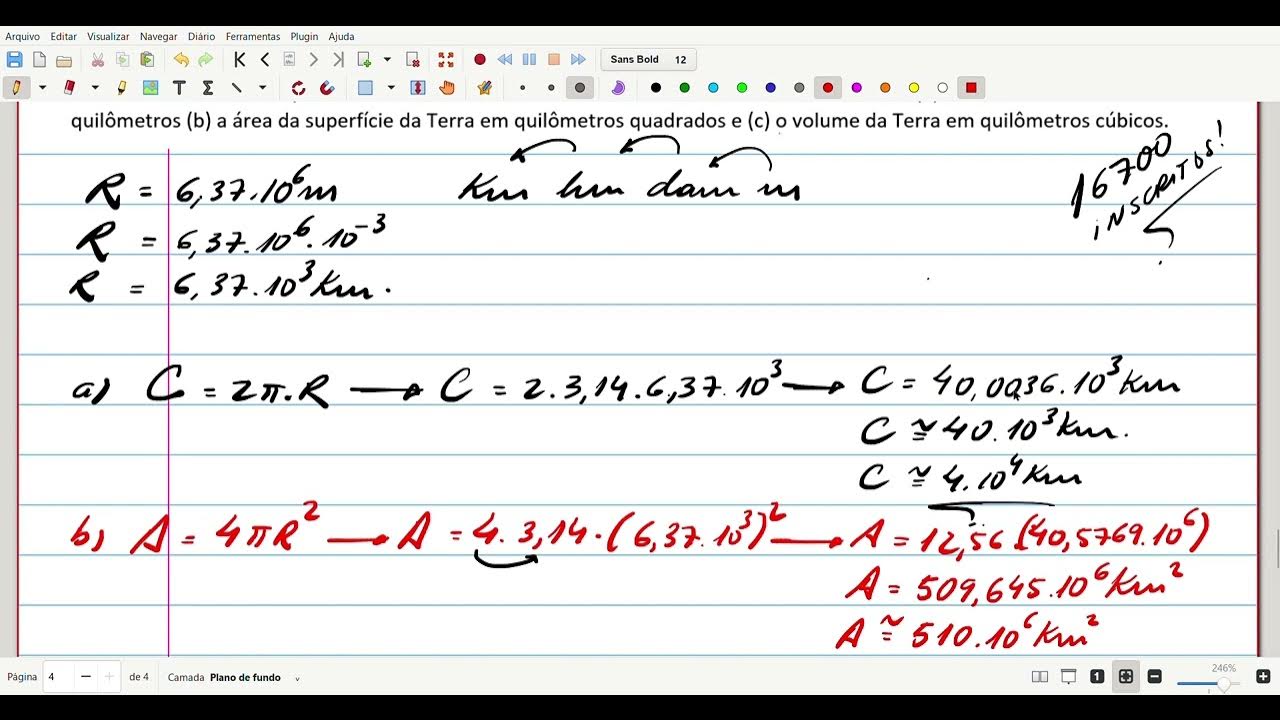 Arquivo Editar Visualizar Navegar Diário Ferramentas Plugin Ajuda
Sans Bold 12
quilômetros (b) a área da superfície da Terra em quilômetros quadrados e (c) o volume da Terra em quilômetros cúbicos.
R = 6,37.10⁶m Km hm dam m
16700
iNSCRITOS!
R = 6,37.10⁶.10⁻³
R = 6,37.10³Km.
a) C = 2π.R → C = 2.3,14.6,37.10³ → C = 40,0036.10³Km
C ≅ 40.10³Km.
C ≅ 4.10⁴Km
b) A = 4πR² → A = 4.3,14.(6,37.10³)² → A = 12,56.(40,5769.10⁶)
A = 509,645.10⁶Km²
A ≅ 510.10⁶Km²
Página 4 de 4 Camada Plano de fundo 246%